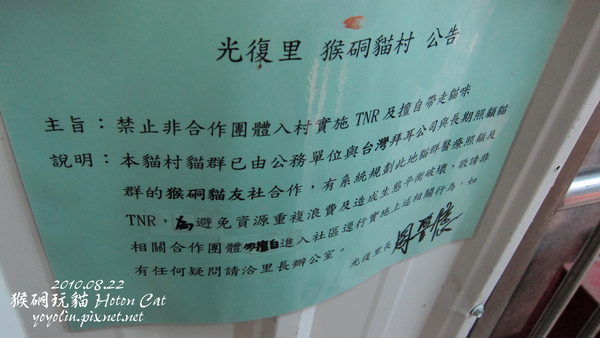 光復里 猴硐貓村 公告
主旨：禁止非合作團體入村實施TNR及擅自帶走貓咪
說明：本貓村貓群已由公務單位與台灣拜耳公司與長期照顧貓
群的猴硐貓友社合作，有系統規劃此地貓群醫療照顧及
TNR，為避免資源重複浪費及造成生態平衡破壞，敬請非
相關合作團體勿擅自進入社區逕行實施上述相關行為，如
有任何疑問請洽里長辦公室。
光復里長
2010.08.22
猴硐玩貓 Hoton Cat
yoyoliu.pixnet.net